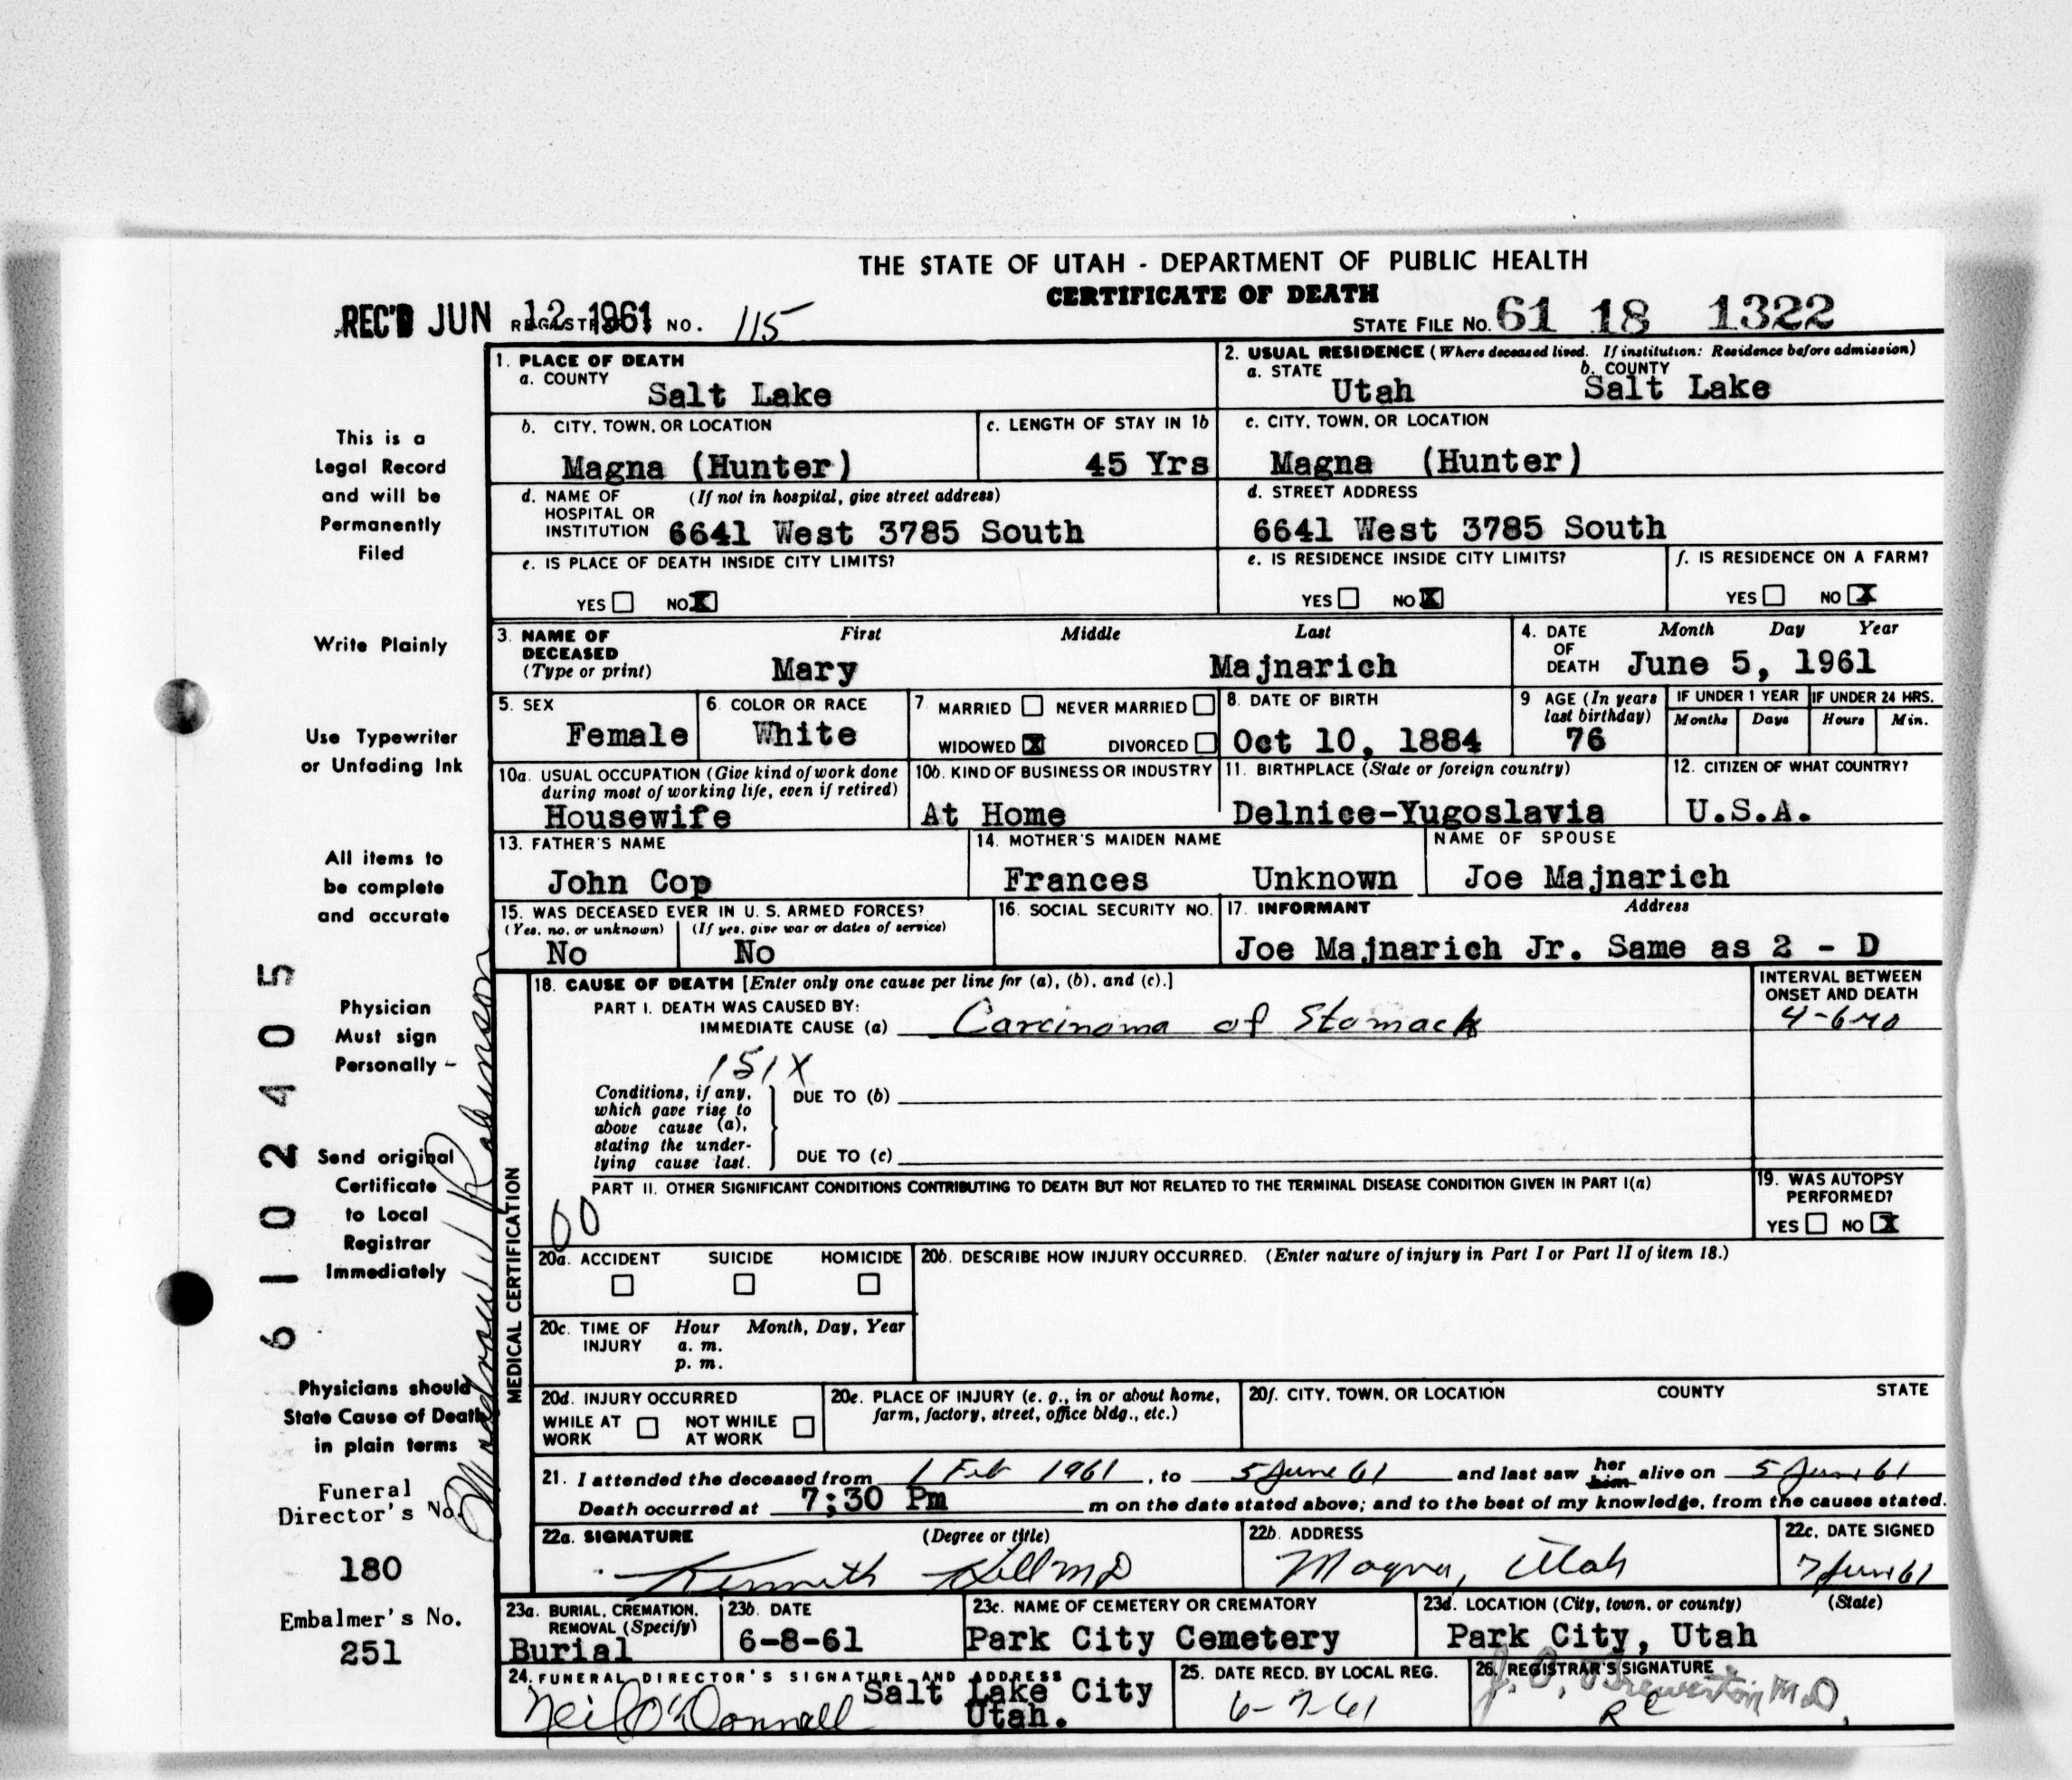 THE STATE OF UTAH - DEPARTMENT OF PUBLIC HEALTH
CERTIFICATE OF DEATH
REC'D JUN 12 1961 REGISTRAR'S NO. 115
STATE FILE NO. 61 18 1322
This is a
Legal Record
and will be
Permanently
Filed
Write Plainly
Use Typewriter
or Unfading Ink
All items to
be complete
and accurate
Physician
Must sign
Personally -
Send original
Certificate
to Local
Registrar
Immediately
Physicians should
State Cause of Death
in plain terms
Funeral
Director's No.
180
Embalmer's No.
251
6102405
Robinson
1. PLACE OF DEATH
a. COUNTY
Salt Lake
2. USUAL RESIDENCE (Where deceased lived. If institution: Residence before admission)
a. STATE b. COUNTY
Utah Salt Lake
b. CITY, TOWN, OR LOCATION
Magna (Hunter)
c. LENGTH OF STAY IN 1b
45 Yrs
c. CITY, TOWN, OR LOCATION
Magna (Hunter)
d. NAME OF (If not in hospital, give street address)
HOSPITAL OR
INSTITUTION 6641 West 3785 South
d. STREET ADDRESS
6641 West 3785 South
e. IS PLACE OF DEATH INSIDE CITY LIMITS?
YES NO X
e. IS RESIDENCE INSIDE CITY LIMITS?
YES NO X
f. IS RESIDENCE ON A FARM?
YES NO X
3. NAME OF First Middle Last
DECEASED
(Type or print) Mary Majnarich
4. DATE Month Day Year
OF
DEATH June 5, 1961
5. SEX
Female
6. COLOR OR RACE
White
7. MARRIED NEVER MARRIED
WIDOWED X DIVORCED
8. DATE OF BIRTH
Oct 10, 1884
9 AGE (In years
last birthday)
76
IF UNDER 1 YEAR
Months Days
IF UNDER 24 HRS.
Hours Min.
10a. USUAL OCCUPATION (Give kind of work done
during most of working life, even if retired)
Housewife
10b. KIND OF BUSINESS OR INDUSTRY
At Home
11. BIRTHPLACE (State or foreign country)
Delnice-Yugoslavia
12. CITIZEN OF WHAT COUNTRY?
U.S.A.
13. FATHER'S NAME
John Cop
14. MOTHER'S MAIDEN NAME
Frances Unknown
NAME OF SPOUSE
Joe Majnarich
15. WAS DECEASED EVER IN U. S. ARMED FORCES?
(Yes, no, or unknown) (If yes, give war or dates of service)
No No
16. SOCIAL SECURITY NO.
17. INFORMANT Address
Joe Majnarich Jr. Same as 2 - D
MEDICAL CERTIFICATION
18. CAUSE OF DEATH [Enter only one cause per line for (a), (b), and (c).]
PART I. DEATH WAS CAUSED BY:
IMMEDIATE CAUSE (a) Carcinoma of Stomach
INTERVAL BETWEEN
ONSET AND DEATH
151X
Conditions, if any,
which gave rise to
above cause (a),
stating the under-
lying cause last.
DUE TO (b)
DUE TO (c)
PART II. OTHER SIGNIFICANT CONDITIONS CONTRIBUTING TO DEATH BUT NOT RELATED TO THE TERMINAL DISEASE CONDITION GIVEN IN PART I(a)
60
19. WAS AUTOPSY
PERFORMED?
YES NO X
20a. ACCIDENT SUICIDE HOMICIDE
20b. DESCRIBE HOW INJURY OCCURRED. (Enter nature of injury in Part I or Part II of item 18.)
20c. TIME OF Hour Month, Day, Year
INJURY a. m.
p. m.
20d. INJURY OCCURRED
WHILE AT WORK NOT WHILE AT WORK
20e. PLACE OF INJURY (e. g., in or about home,
farm, factory, street, office bldg., etc.)
20f. CITY, TOWN, OR LOCATION COUNTY STATE
21. I attended the deceased from 1 Feb 1961, to 5 June 61 and last saw her him alive on 5 June 61
Death occurred at 7:30 Pm m on the date stated above; and to the best of my knowledge, from the causes stated.
22a. SIGNATURE (Degree or title)
Kenneth MD
22b. ADDRESS
Magna, Utah
22c. DATE SIGNED
7 June 61
23a. BURIAL, CREMATION,
REMOVAL (Specify)
Burial
23b. DATE
6-8-61
23c. NAME OF CEMETERY OR CREMATORY
Park City Cemetery
23d. LOCATION (City, town, or county) (State)
Park City, Utah
24. FUNERAL DIRECTOR'S SIGNATURE AND ADDRESS
Neil O'Donnell Salt Lake City
Utah.
25. DATE RECD. BY LOCAL REG.
6-7-61
26. REGISTRAR'S SIGNATURE
M.D.